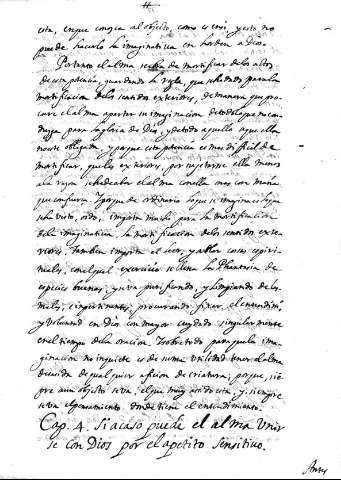 esta, en que conosca al objeto, como es en si, y esto no
puede hacerlo la imaginativa en horden a Dios.
Por tanto el alma se ha de mortificar de los actos
de esta potencia, guardando la regla que se ha dado para la
mortificacion de los sentidos exteriores, de manera que pro-
cure el alma apartar su imaginacion de todo lo que no con-
duzga para la gloria de Dios, y de todo aquello a que ella
no esté obligada, y porque esta potencia es mas dificil de
mortificar, que los exteriores, por sujetarse ella menos
a la rason se ha de aber el alma con ella mas con maña
que con fuersa. Y porque de ordinario lo que se imagina es lo que
se ha visto, oido, importa mucho para la mortificacion
de la imaginativa la mortificacion de los sentidos exte-
riores; tambien importa el leer, y ablar cosas espiri-
tuales, con el qual exercicio se llena la Phantasia de
especies buenas, y se va purificando, y limpiando de las
malas, e impertinentes, procurando fixar el entendimto
y voluntad en Dios con mayor cuydado singularmente
en el tiempo de la oracion. Y sobre todo para que la ima-
ginacion no inquiete es de suma utilidad tener el alma
desasida de qualquier aficion de criatura; porque, siem-
pre un objeto se va, el que muy asido está, y siempre
se va el pensamiento donde tiene el entendimiento.
Cap. 4. Si acaso puede el alma Unir
se con Dios por el apetito sensitivo.